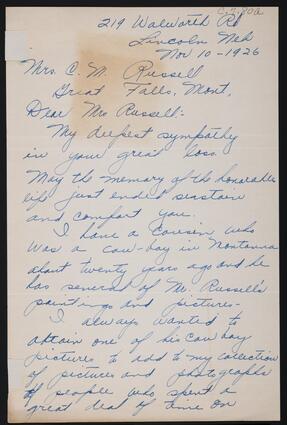 C.7.80a
219 Walworth Rd
Lincoln Neb
Nov 10-1926
Mrs. C. M. Russell
Great Falls, Mont.
Dear Mrs Russell:-
My deepest sympathy
in your great loss.
May the memory of the honorable
life just ended seastain
and comfort you.
I have a cousin who
was a cow-boy in Montana
about twenty years ago and he
has several of Mr. Russell's
paintings and pictures-
I always wanted to
obtain one of his cow boy
pictures to add to my collection
of pictures and photographs
of people who spent a
great deal of time on